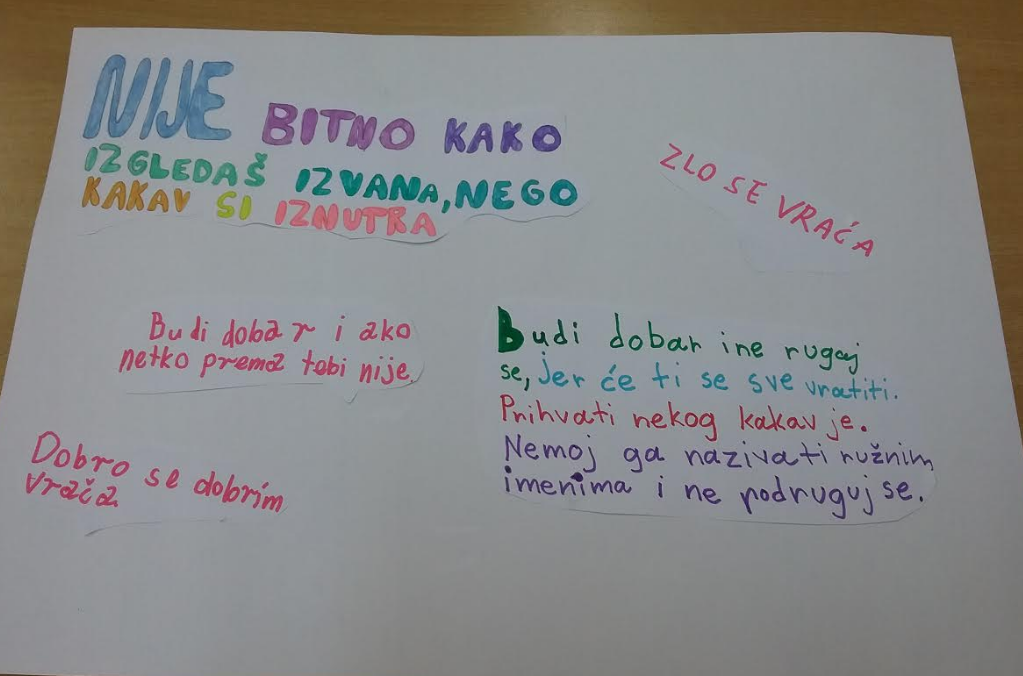 NIJE BITNO KAKO
IZGLEDAŠ IZVANA, NEGO
KAKAV SI IZNUTRA
ZLO SE VRAĆA
Budi dobar i ako
netko prema tebi nije
Budi dobar i ne rugaj
se, jer će ti se sve vratiti.
Prihvati nekog kakav je.
Nemoj ga nazivati ružnim
imenima i ne podruguj se.
Dobro se dobrim
vrača